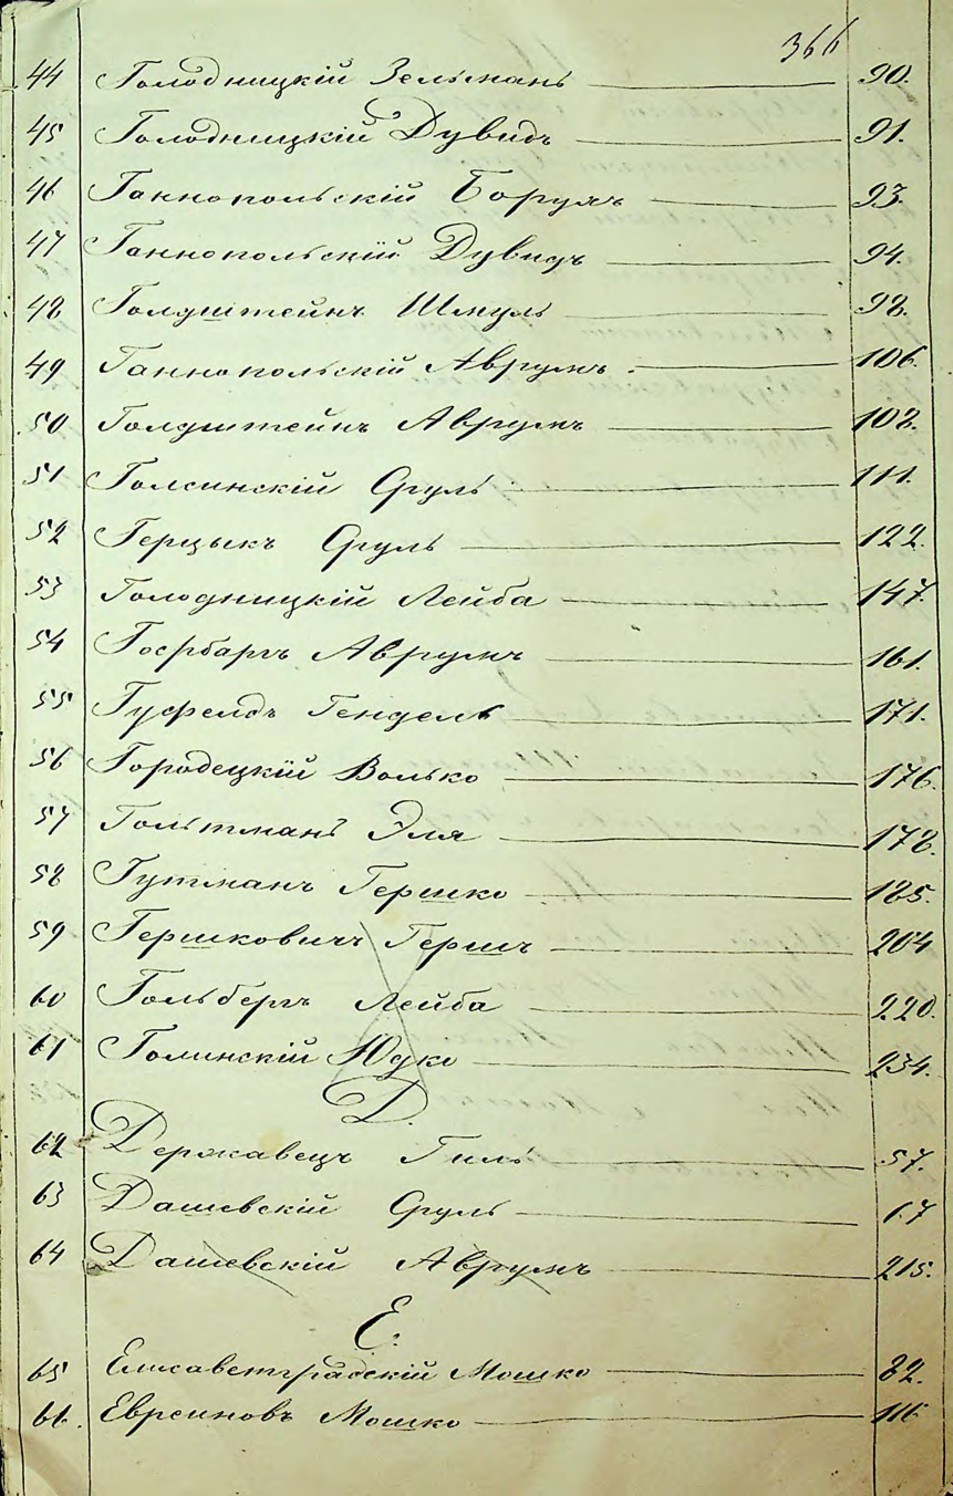 366
44 Голодницкій Зельманъ 90.
45 Голодницкій Дувидъ 91.
46 Ганнопольскій Борухъ 93.
47 Ганнопольскій Дувидъ 94.
48 Голдштейнъ Шмуль 98.
49 Ганнопольскій Аврумъ 106.
50 Голдштейнъ Аврумъ 108.
51 Сруль 111.
52 Герцыкъ Сруль 122.
53 Голодницкій Лейба 147.
54 Аврумъ 161.
55 Гуфелдъ Гендель 171.
56 Городецкій Волько 176.
57 Гольтманъ Эля 178.
58 Гутманъ Гершко 185.
59 Гершковичъ Гершъ 204
60 Гольбергъ Лейба 220.
61 Голинскій Юдко 234.
Д.
62 Державецъ Гиль 57.
63 Дашевскій Сруль 67
64 Дашевскій Аврумъ 215.
Е.
65 Елисаветградскій Мошко 82.
66. Евреиновъ Мошко 116